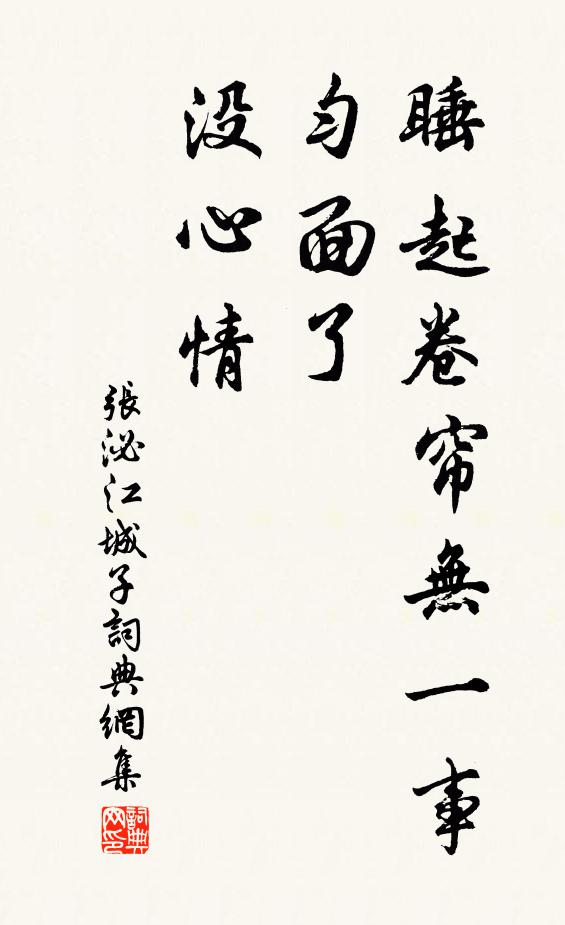 睡起卷帘無一事
匀面了
没心情
張泌江城子詞典網集
詞典网印